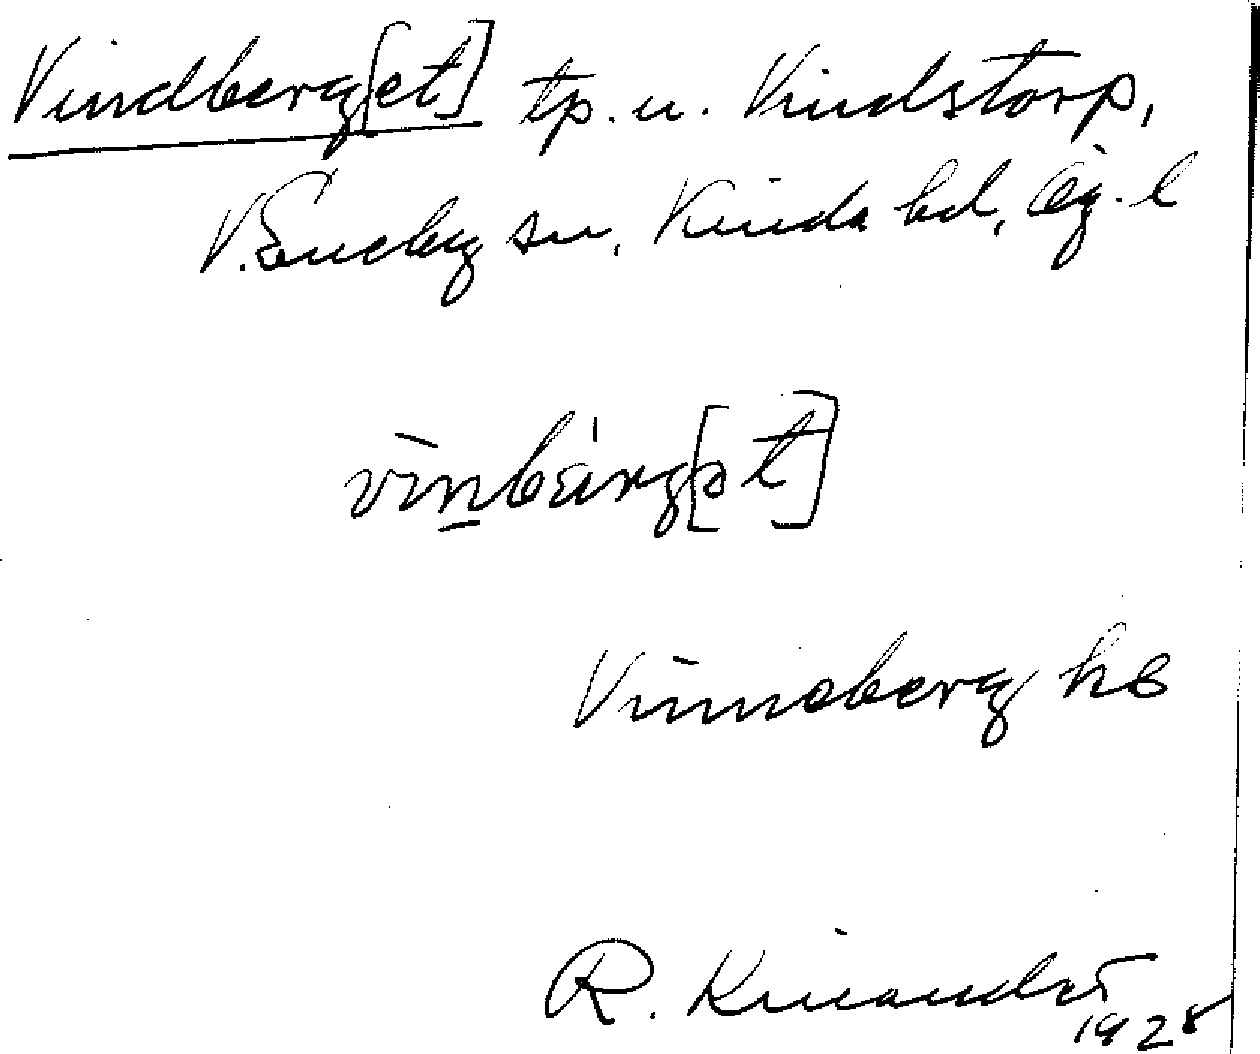 Vindberg[et] tp. u. Kindstorp,
V. Eneby sn, Kinda hd, Ög. l
vìnbärg[ət]
Vinneberg hs
R. Kinander
1928